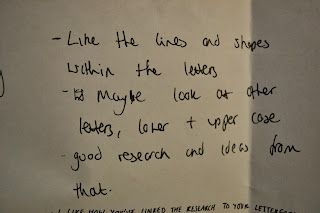 - Like the lines and shapes
within the letters
- Maybe look at other
letters, lower + upper case
- good research and ideas from
that.
I LIKE HOW YOU'VE LINKED THE RESEARCH TO YOUR